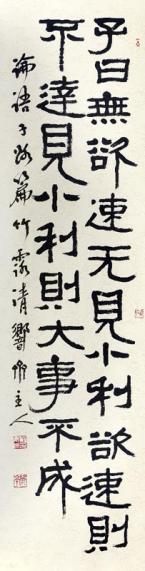 子曰無欲速无見小利欲速則
不達見小利則大事不成
論語子路篇竹露清響帷主人